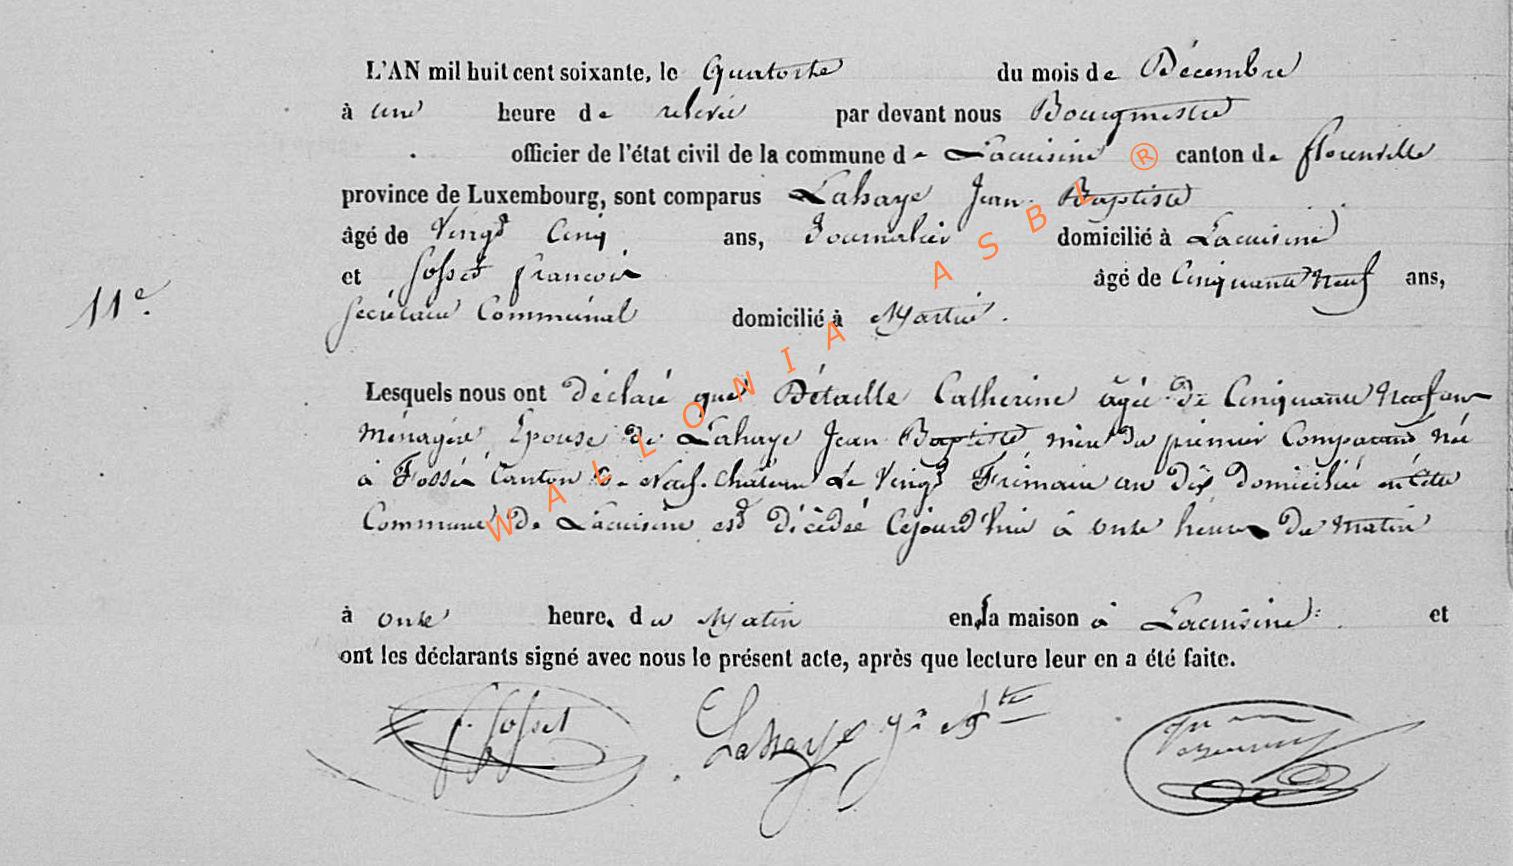 L'AN mil huit cent soixante, le Quatorze du mois de Décembre
à une heure de relevée par devant nous Bourgmestre
officier de l'état civil de la commune de Lacuisine canton de florenville
province de Luxembourg, sont comparus Lahaye Jean Baptiste
âgé de Vingt Cinq ans, Journalier domicilié à Lacuisine
et Gosset francois âgé de Cinquante Neuf ans,
11e. Secrétaire Communal domicilié à Martué.
Lesquels nous ont déclaré que Détaille Catherine agée de Cinquante Neuf ans
Ménagère Epouse de Lahaye Jean Baptiste mère du premier Comparant née
à Fossée Canton de Neuf-Château le Vingt Frimaire an Dix domiciliée en cette
Commune de Lacuisine est décédée Cejourd'hui à onze heures du matin
à onze heures du Matin en la maison à Lacuisine et
ont les déclarants signé avec nous le présent acte, après que lecture leur en a été faite.
f. Gosset Lahaye Jn Bte
WALLONIA ASBL ®